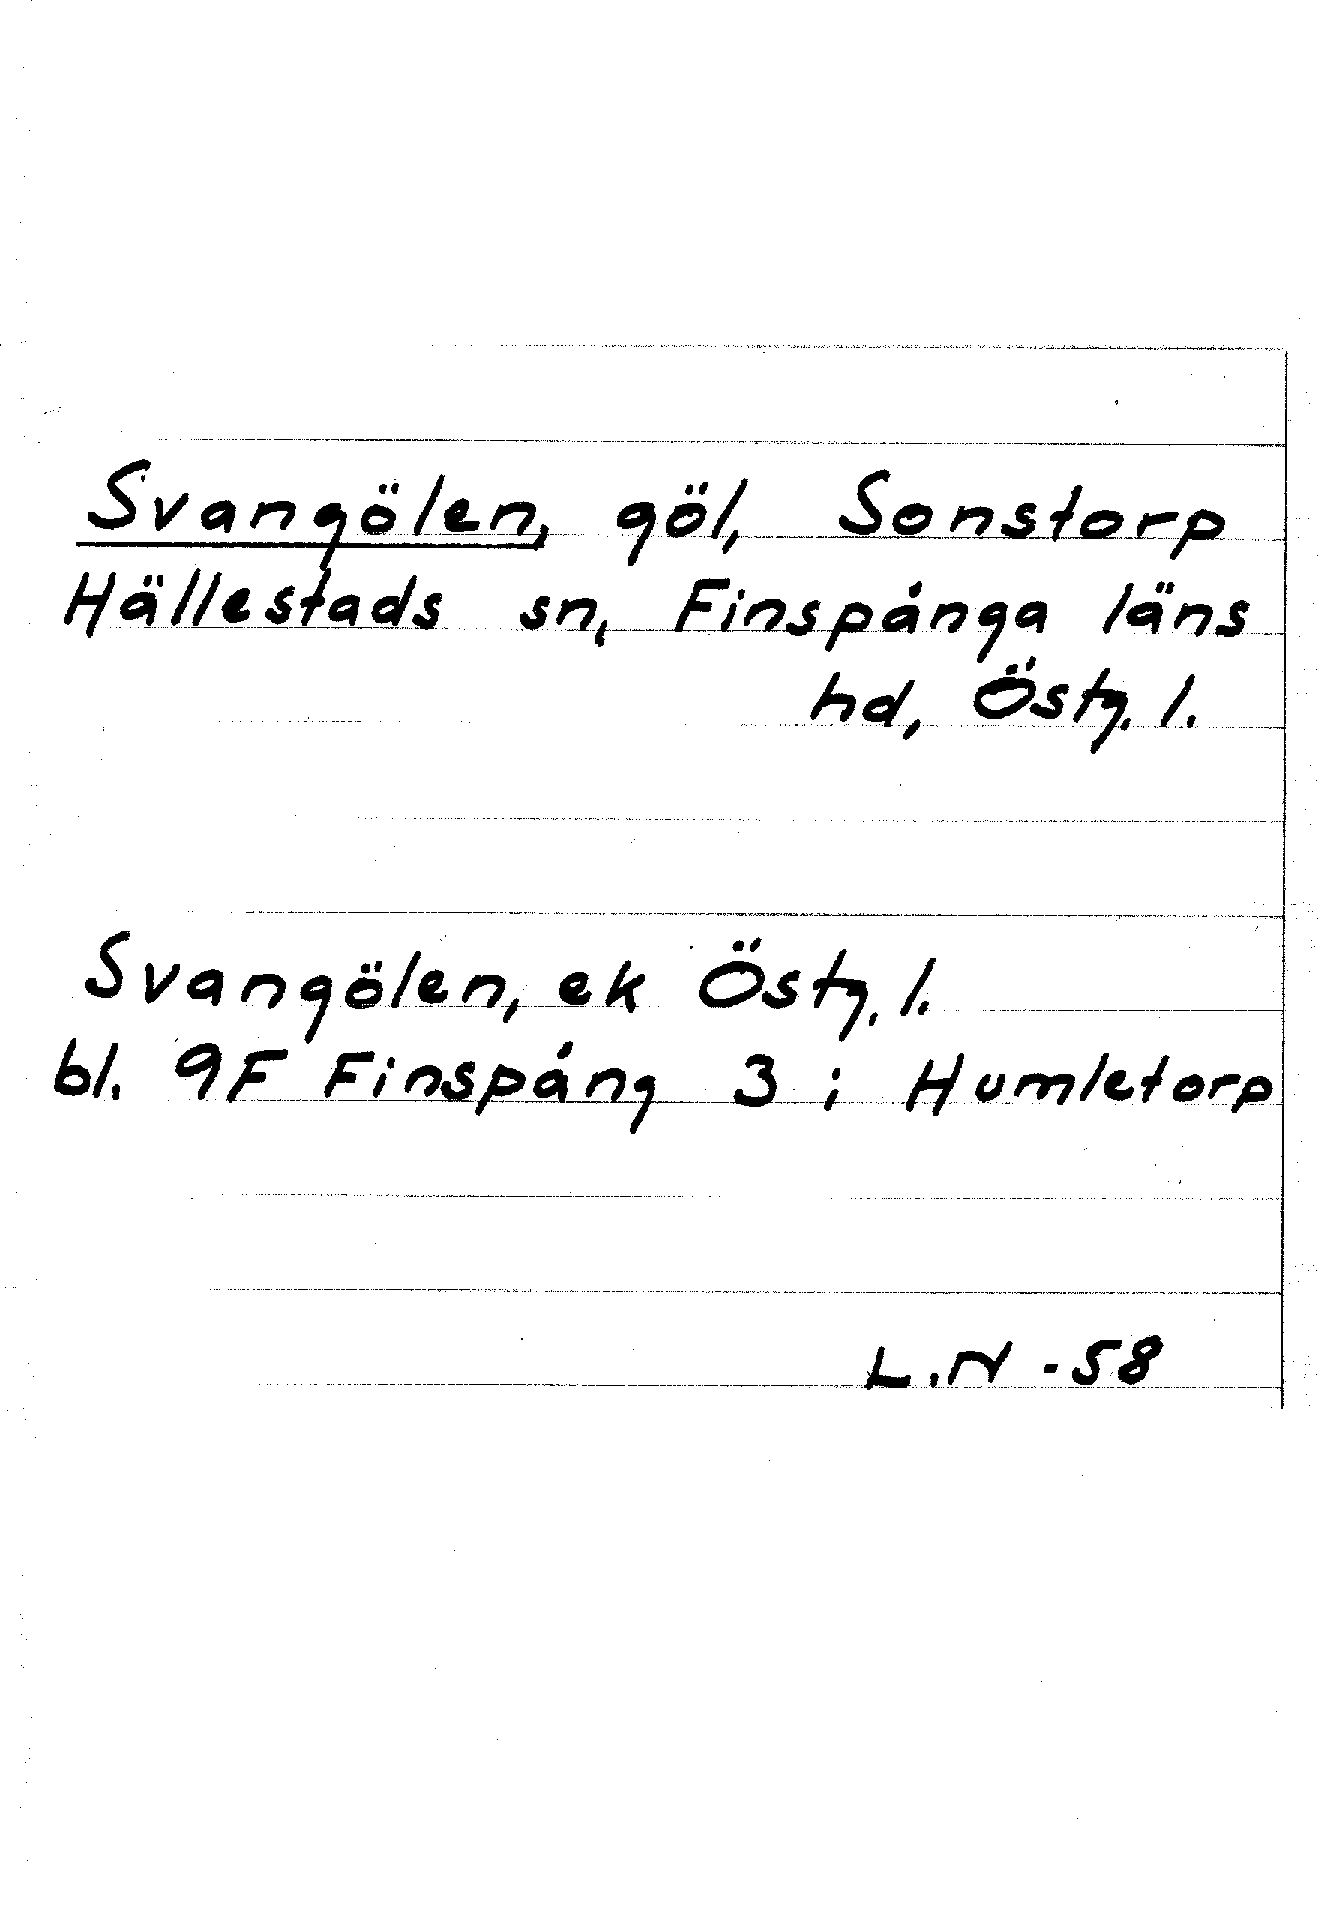 Svangölen, göl, Sonstorp
Hällestads sn, Finspånga läns
hd, Östg. l.
Svangölen, ek Östg. l.
bl. 9F Finspång 3 i Humletorp
L.N -58